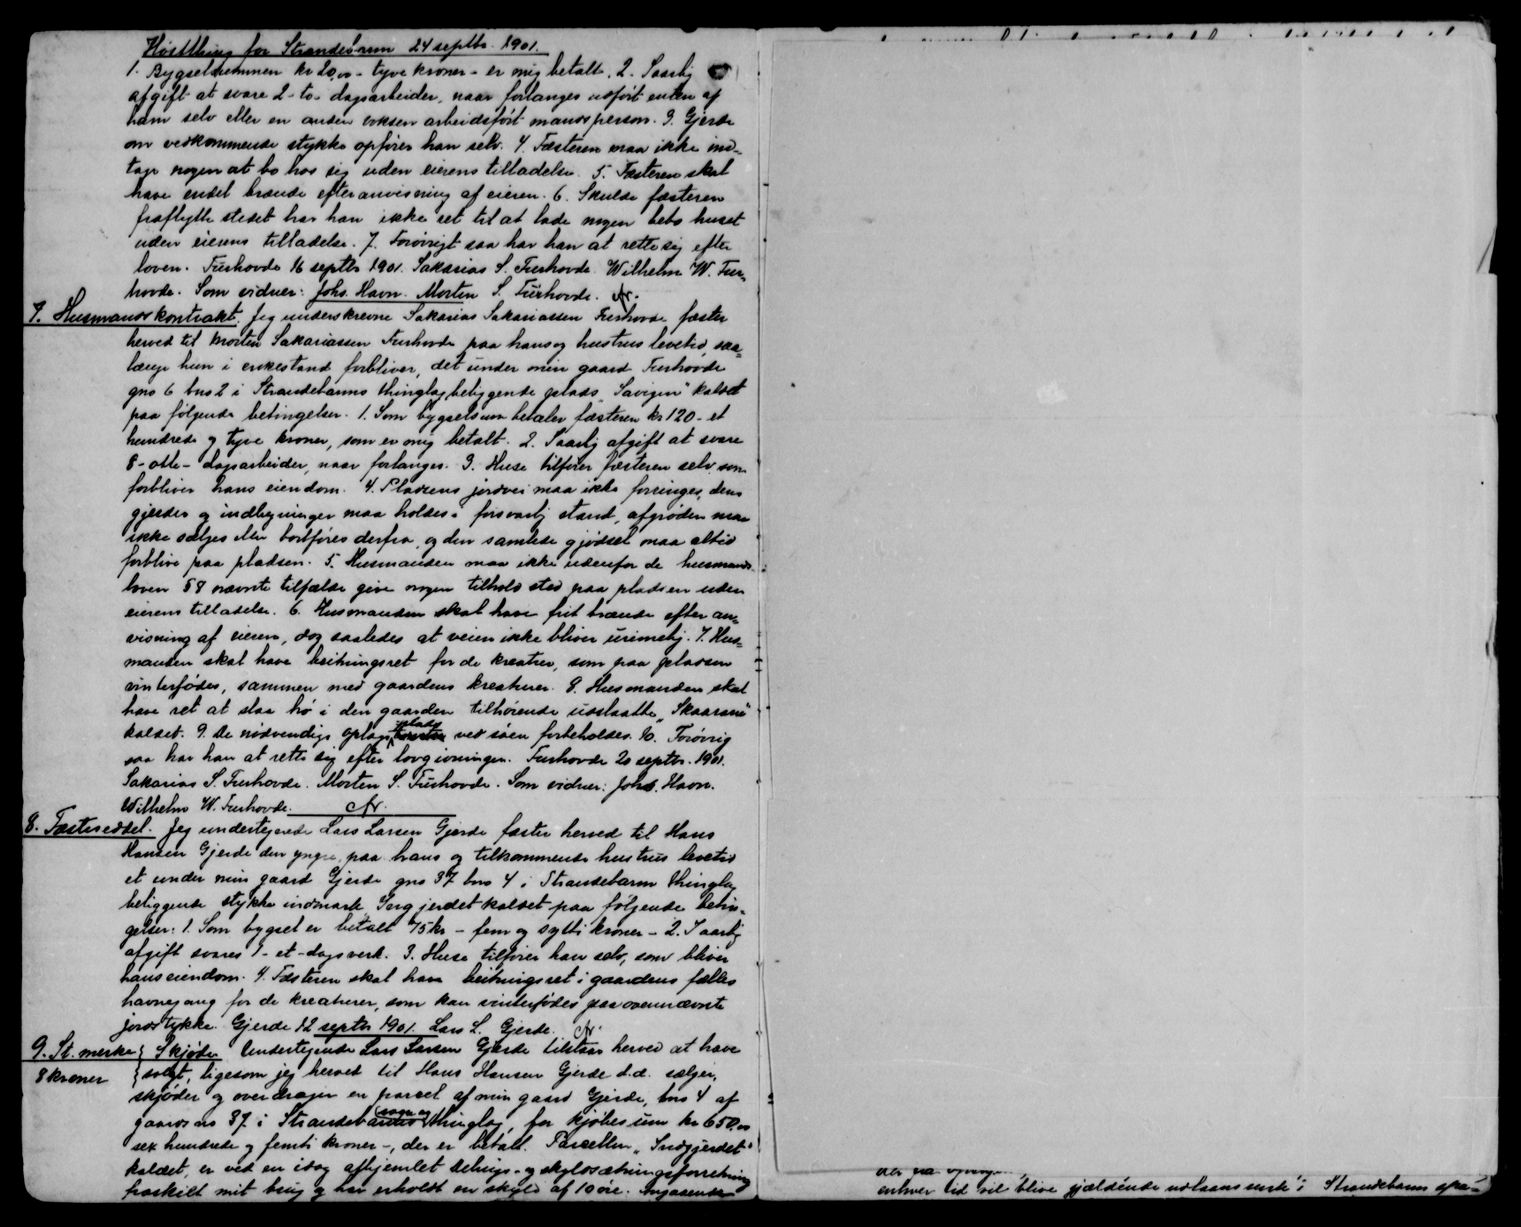 Høstthing for Strandebarm 24 septbr. 1901.
1. Bygselsummen kr 20,00 - tyve kroner - er mig betalt. 2. I aarlig
afgift at svare 2-to- dagsarbeider, naar forlanges udført enten af
ham selv eller en anden voksen arbeidsført mandsperson. 3. Gjerde
om vedkommende stykke opfører han selv. 4. Fæsteren maa ikke ind-
tage nogen at bo hos sig uden eierens tilladelse. 5. Fæsteren skal
have endel brænde efter anvisning af eieren. 6. Skulde fæsteren
fraflytte stedet har han ikke ret til at lade nogen bebo huset
uden eierens tilladelse. 7. Forøvrigt saa har han at rette sig efter
loven. Furhovde 16 septbr 1901. Sakarias S. Furhovde. Wilhelm W. Fur-
hovde. Som vidner: Johs. Havn. Morten S. Furhovde. cfr.
7. Husmandskontrakt. Jeg underskrevne Sakarias Sakariassen Furhovde fæster
herved til Morten Sakariassen Furhovde paa hans og hustrus levetid, saa-
længe hun i enkestand forbliver, det under min gaard Furhovde
gno 6 bno 2 i Strandebarms thinglag beliggende plads "Savigen" kaldet
paa følgende betingelser. 1. Som bygselsum betaler fæsteren kr 120 - et
hundrede og tyve kroner, som er mig betalt. 2. I aarlig afgift at svare
8-otte- dagsarbeider, naar forlanges. 3. Huse tilfører fæsteren selv som
forbliver hans eiendom. 4. Pladsens jordvei maa ikke forringes, dens
gjerder og indhegninger maa holdes i forsvarlig stand, afgrøden maa
ikke sælges eller bortføres derfra, og den samlede gjødsel maa altid
forblive paa pladsen. 5. Husmanden maa ikke udenfor de husmands-
loven §8 nævnte tilfælde give nogen tilholdsted paa pladsen uden
eierens tilladelse. 6. Husmanden skal have frit brænde efter an-
visning af eieren, dog saaledes at veien ikke bliver urimelig. 7. Hus-
manden skal have beitningsret for de kreatur, som paa pladsen
vinterfødes, sammen med gaardens kreaturer. 8. Husmanden skal
have ret at slaa hø i den gaarden tilhørende udslaatte "Skaarane"
kaldet. 9. De nødvendige oplagsplads ved søen forbeholdes. 10. Forøvrig
saa har han at rette sig efter lovgivningen. Furhovde 20 septbr. 1901.
Sakarias S. Furhovde. Morten S. Furhovde. Som vidner: Johs. Havn.
Wilhelm W. Furhovde. cfr.
8. Fæsteseddel. Jeg undertegnede Lars Larsen Gjerde fæster herved til Hans
Hansen Gjerde den yngre, paa hans og tilkommende hustrus levetid
et under min gaard Gjerde gno 37 bno 4 i Strandebarm thinglag
beliggende stykke indmark kaldet paa følgende betin-
gelser: 1. Som bygsel er betalt 75 kr - fem og sytti kroner - 2. I aarlig
afgift svares 1-et-dagsverk. 3. Huse tilfører han selv, som bliver
hans eiendom. 4. Fæsteren skal have beitningsret i gaardens fælles
havnegang for de kreaturer, som kan vinterfødes paa ovennævnte
jordstykke. Gjerde 12 septbr 1901. Lars L. Gjerde. cfr.
9. St. merke } Skjøde. Undertegnede Lars Larsen Gjerde tilstaar herved at have
8 kroner } solgt, ligesom jeg herved til Hans Hansen Gjerde d.æ. sælger,
skjøder og overdrager en parcel af min gaard Gjerde, bno 4 af
gaards no 37 i Strandebarms sogn og thinglag, for kjøbesum kr 650,00
sex hundrede og femti kroner -, der er betalt. Parcellen "Indgjerdet"
kaldet, er ved en idag afhjemlet delings- og skyldsætningsforretning
fraskilt mit brug og har erholdt en skyld af 10 øre. Angaaende
enhver tid vil blive gjældende udlaansrente i Strandebarms spa-